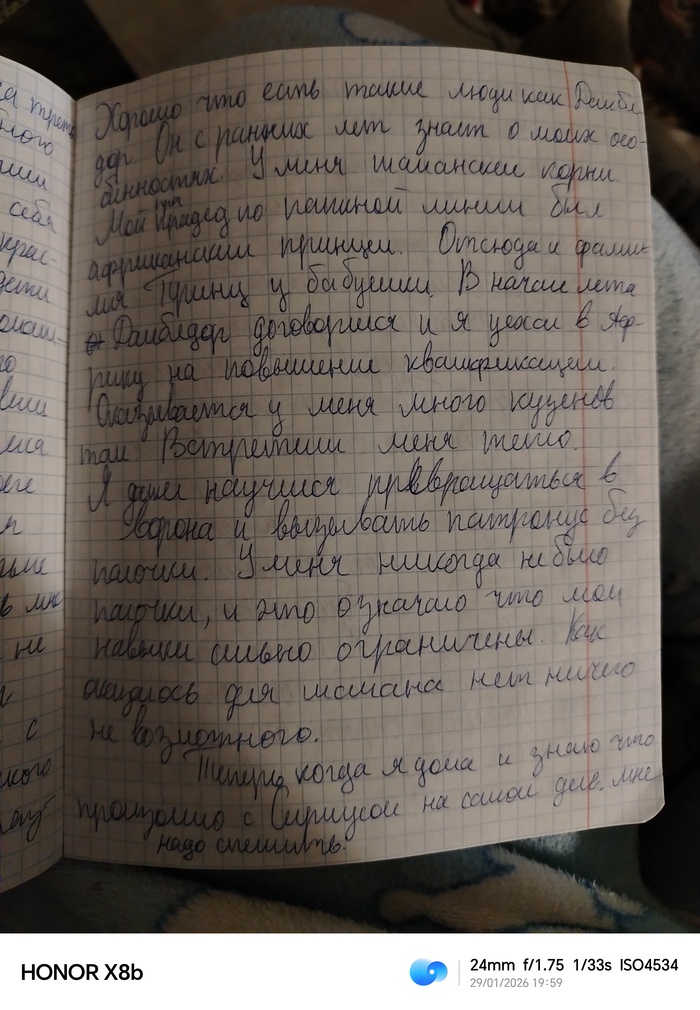 Хорошо что есть такие люди как Дамбл
дор. Он с ранних лет знает о моих осо-
бенностях. У меня шамански корни.
Мой пра прадед по папиной линии был
африканским принцем. Отсюда и фами-
лия Принц у бабушки. В начале лета
Дамблдор договорился и я уехал в Аф-
рику на повышение квалификации.
Оказывается у меня много кузенов
там Встретили меня тепло.
Я даже научился превращаться в
ворона и вызывать патронус без
палочки. У меня никогда не было
палочки, и это означало что мои
навыки сильно ограничены. Как
оказалось для шамана нет ничего
не возможного.
Теперь когда я дома и знаю что
произошло с Сириусом на самом деле. мне
надо спешить.
ного
себя
крас-
дети
в мне
не
с
HONOR X8b
24mm f/1.75 1/33s ISO4534
29/01/2026 19:59